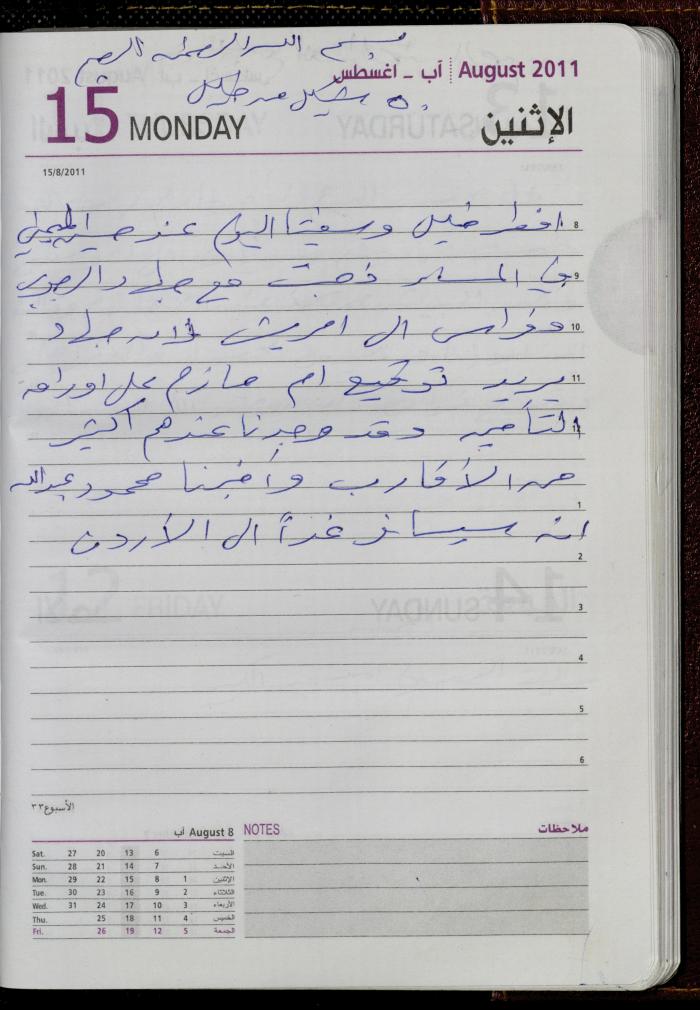 بسم الله الرحمن الرحيم
آب - اغسطس August 2011
15 MONDAY الإثنين
15/8/2011
8 افطر خليل وسقينا اليوم عند حسين
9 في المساء ذهبت مع جهاد الرجوب
10 وفراس الى امريش لانه جهاد
11 يريد توقيع ام حازم على اوراق
12 التأمين وقد وجدنا عندهم أكثير
من الأقارب وأخبرنا محمود عبدالله
1
انه سيسافر غداً الى الأردن
2
3
4
5
6
الأسبوع ٣٣
August 8 آب
Sat. 27 20 13 6 السبت
Sun. 28 21 14 7 الأحد
Mon. 29 22 15 8 1 الإثنين
Tue. 30 23 16 9 2 الثلاثاء
Wed. 31 24 17 10 3 الأربعاء
Thu. 25 18 11 4 الخميس
Fri. 26 19 12 5 الجمعة
NOTES ملاحظات